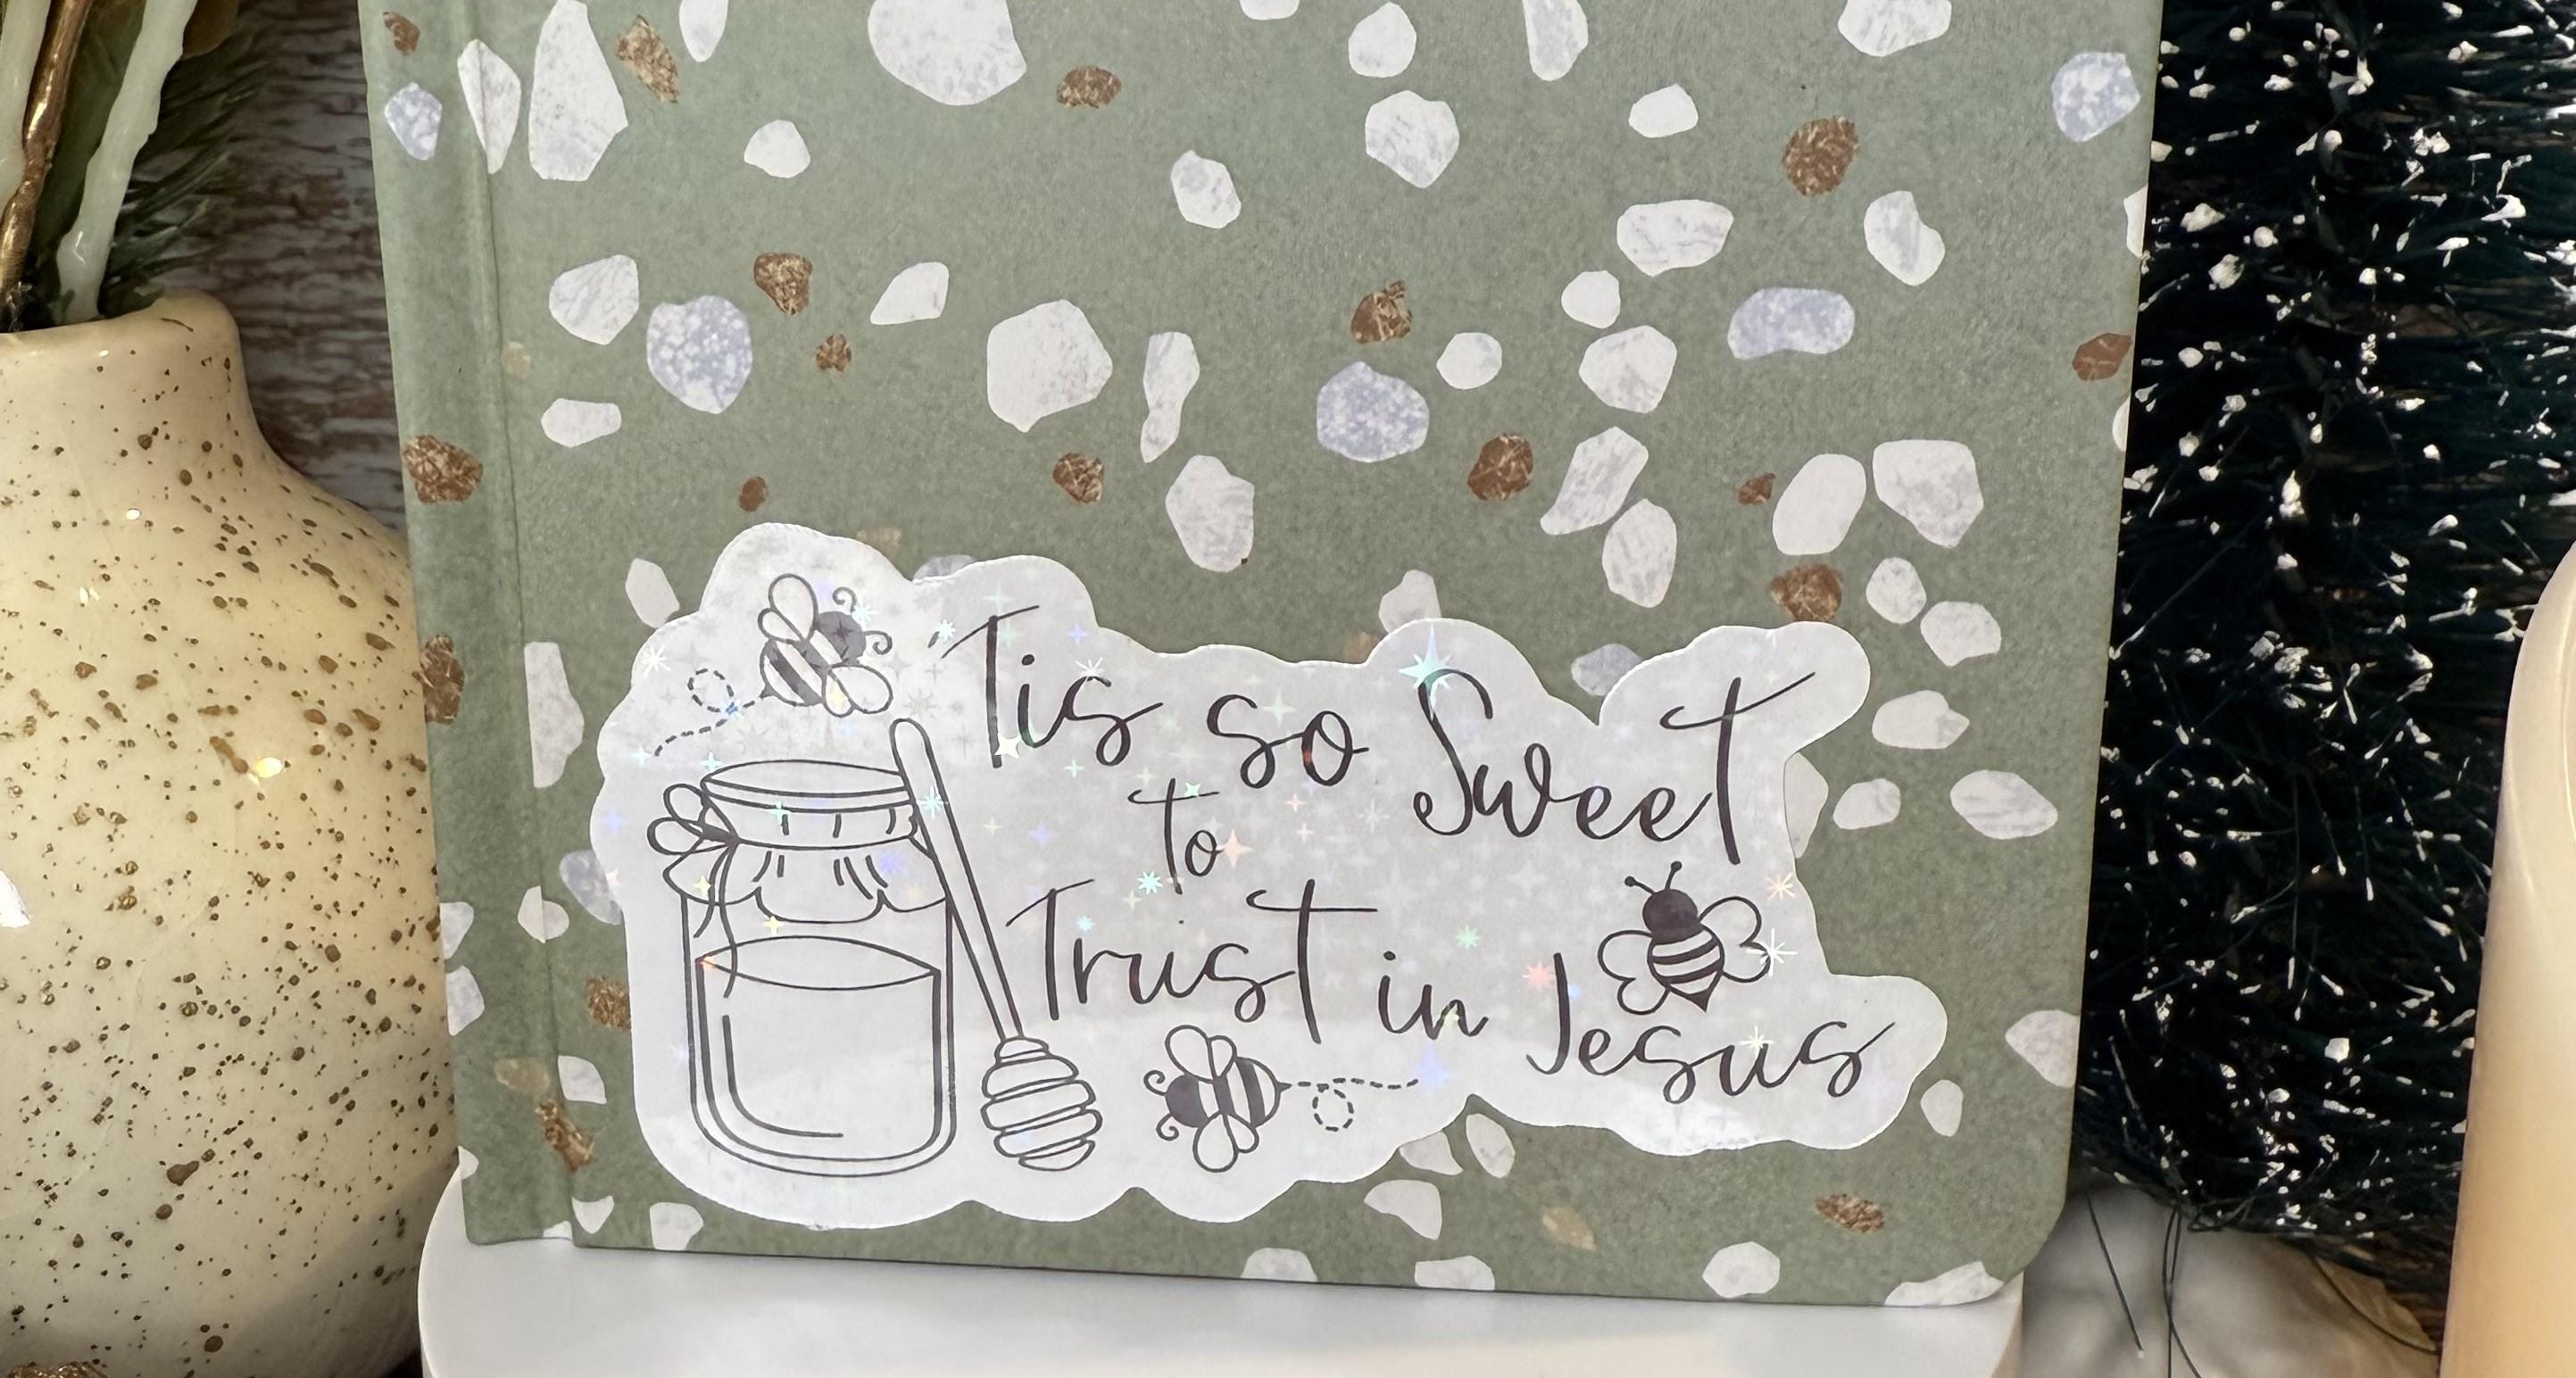 'Tis so Sweet
to
Trust in Jesus